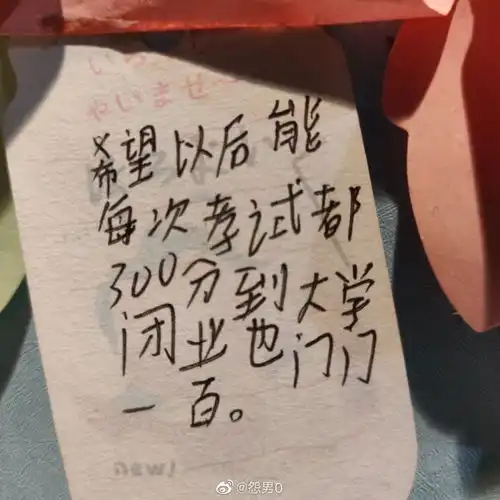 いら
ゃいませ
希望以后能
每次考试都
300分到大学
闭业也门门
一百。
new!
@怨男0